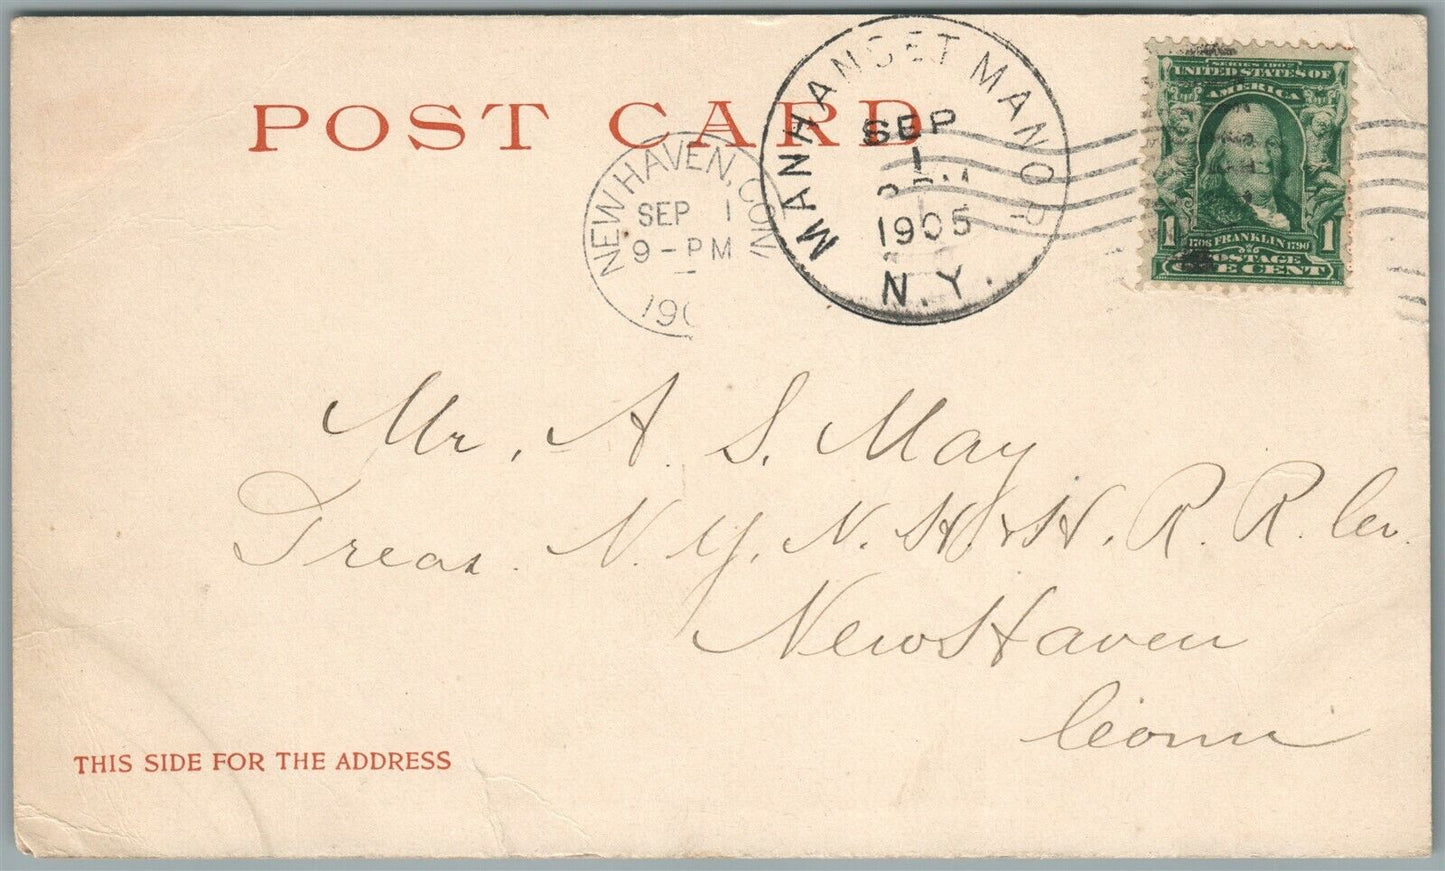 POST CARD
MANHANSET MANOR
SEP
1
1905
N.Y.
NEW HAVEN, CONN
SEP 1
9-PM
190
SERIES 1902
UNITED STATES OF
AMERICA
1706 FRANKLIN 1790
1 1
POSTAGE
ONE CENT
Mr. A. S. May
Treas. N. Y. N. H. & H. R. R. Co.
New Haven
Conn
THIS SIDE FOR THE ADDRESS